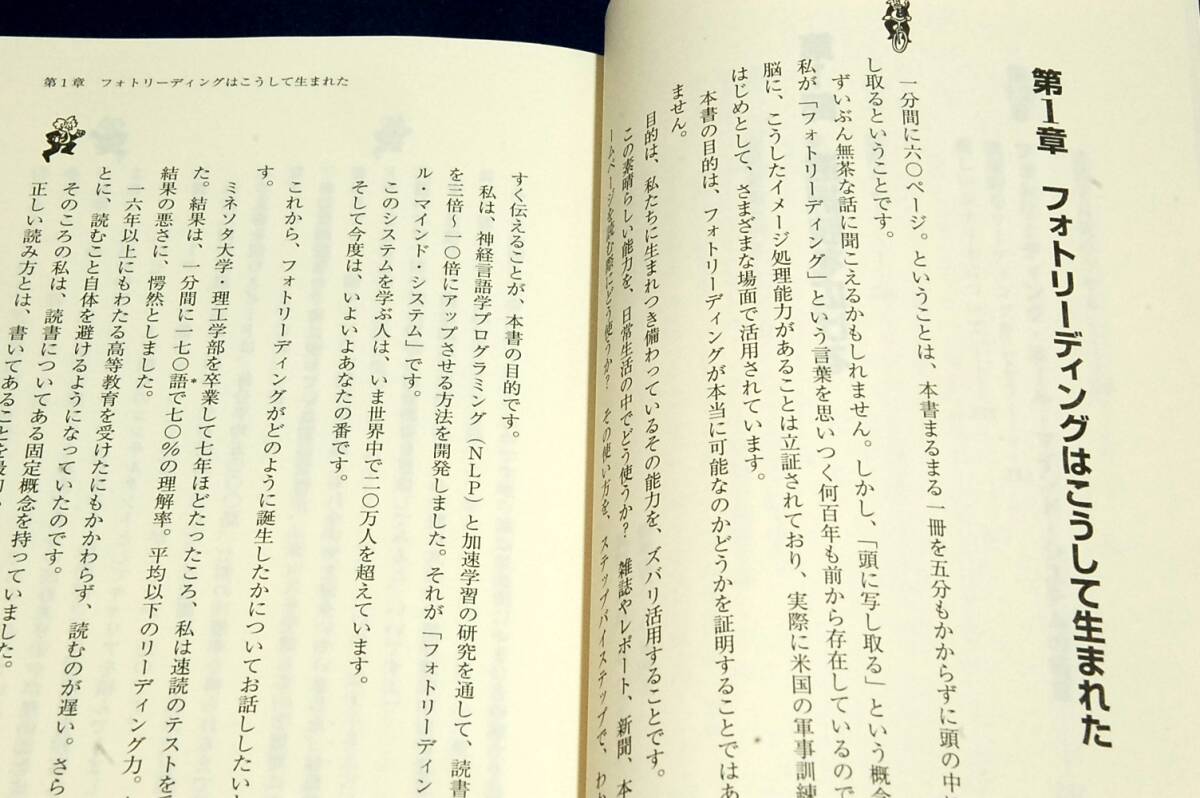 第1章 フォトリーディングはこうして生まれた
一分間に六〇ページ。ということは、本書まるまる一冊を五分もかからずに頭の中
し取るということです。
ずいぶん無茶な話に聞こえるかもしれません。しかし、「頭に写し取る」という概念
私が「フォトリーディング」という言葉を思いつく何百年も前から存在しているので
脳に、こうしたイメージ処理能力があることは立証されており、実際に米国の軍事訓練
はじめとして、さまざまな場面で活用されています。
本書の目的は、フォトリーディングが本当に可能なのかどうかを証明することではあ
ません。
目的は、私たちに生まれつき備わっているその能力を、ズバリ活用することです。
この素晴らしい能力を、日常生活の中でどう使うか? 雑誌やレポート、新聞、本
ームページを読む際にどう使うか? その使い方を、ステップバイステップで、わ
第1章 フォトリーディングはこうして生まれた
すく伝えることが、本書の目的です。
私は、神経言語学プログラミング(NLP)と加速学習の研究を通して、読書
を三倍〜一〇倍にアップさせる方法を開発しました。それが「フォトリーディン
ル・マインド・システム」です。
このシステムを学ぶ人は、いま世界中で二〇万人を超えています。
そして今度は、いよいよあなたの番です。
これから、フォトリーディングがどのように誕生したかについてお話ししたい
す。
ミネソタ大学・理工学部を卒業して七年ほどたったころ、私は速読のテストを
た。結果は、一分間に一七〇語で七〇%の理解率。平均以下のリーディング力。
結果の悪さに、愕然としました。
一六年以上にもわたる高等教育を受けたにもかかわらず、読むのが遅い。さら
とに、読むこと自体を避けるようになっていたのです。
そのころの私は、読書についてある固定概念を持っていました。
正しい読み方とは、書いてあることを最初